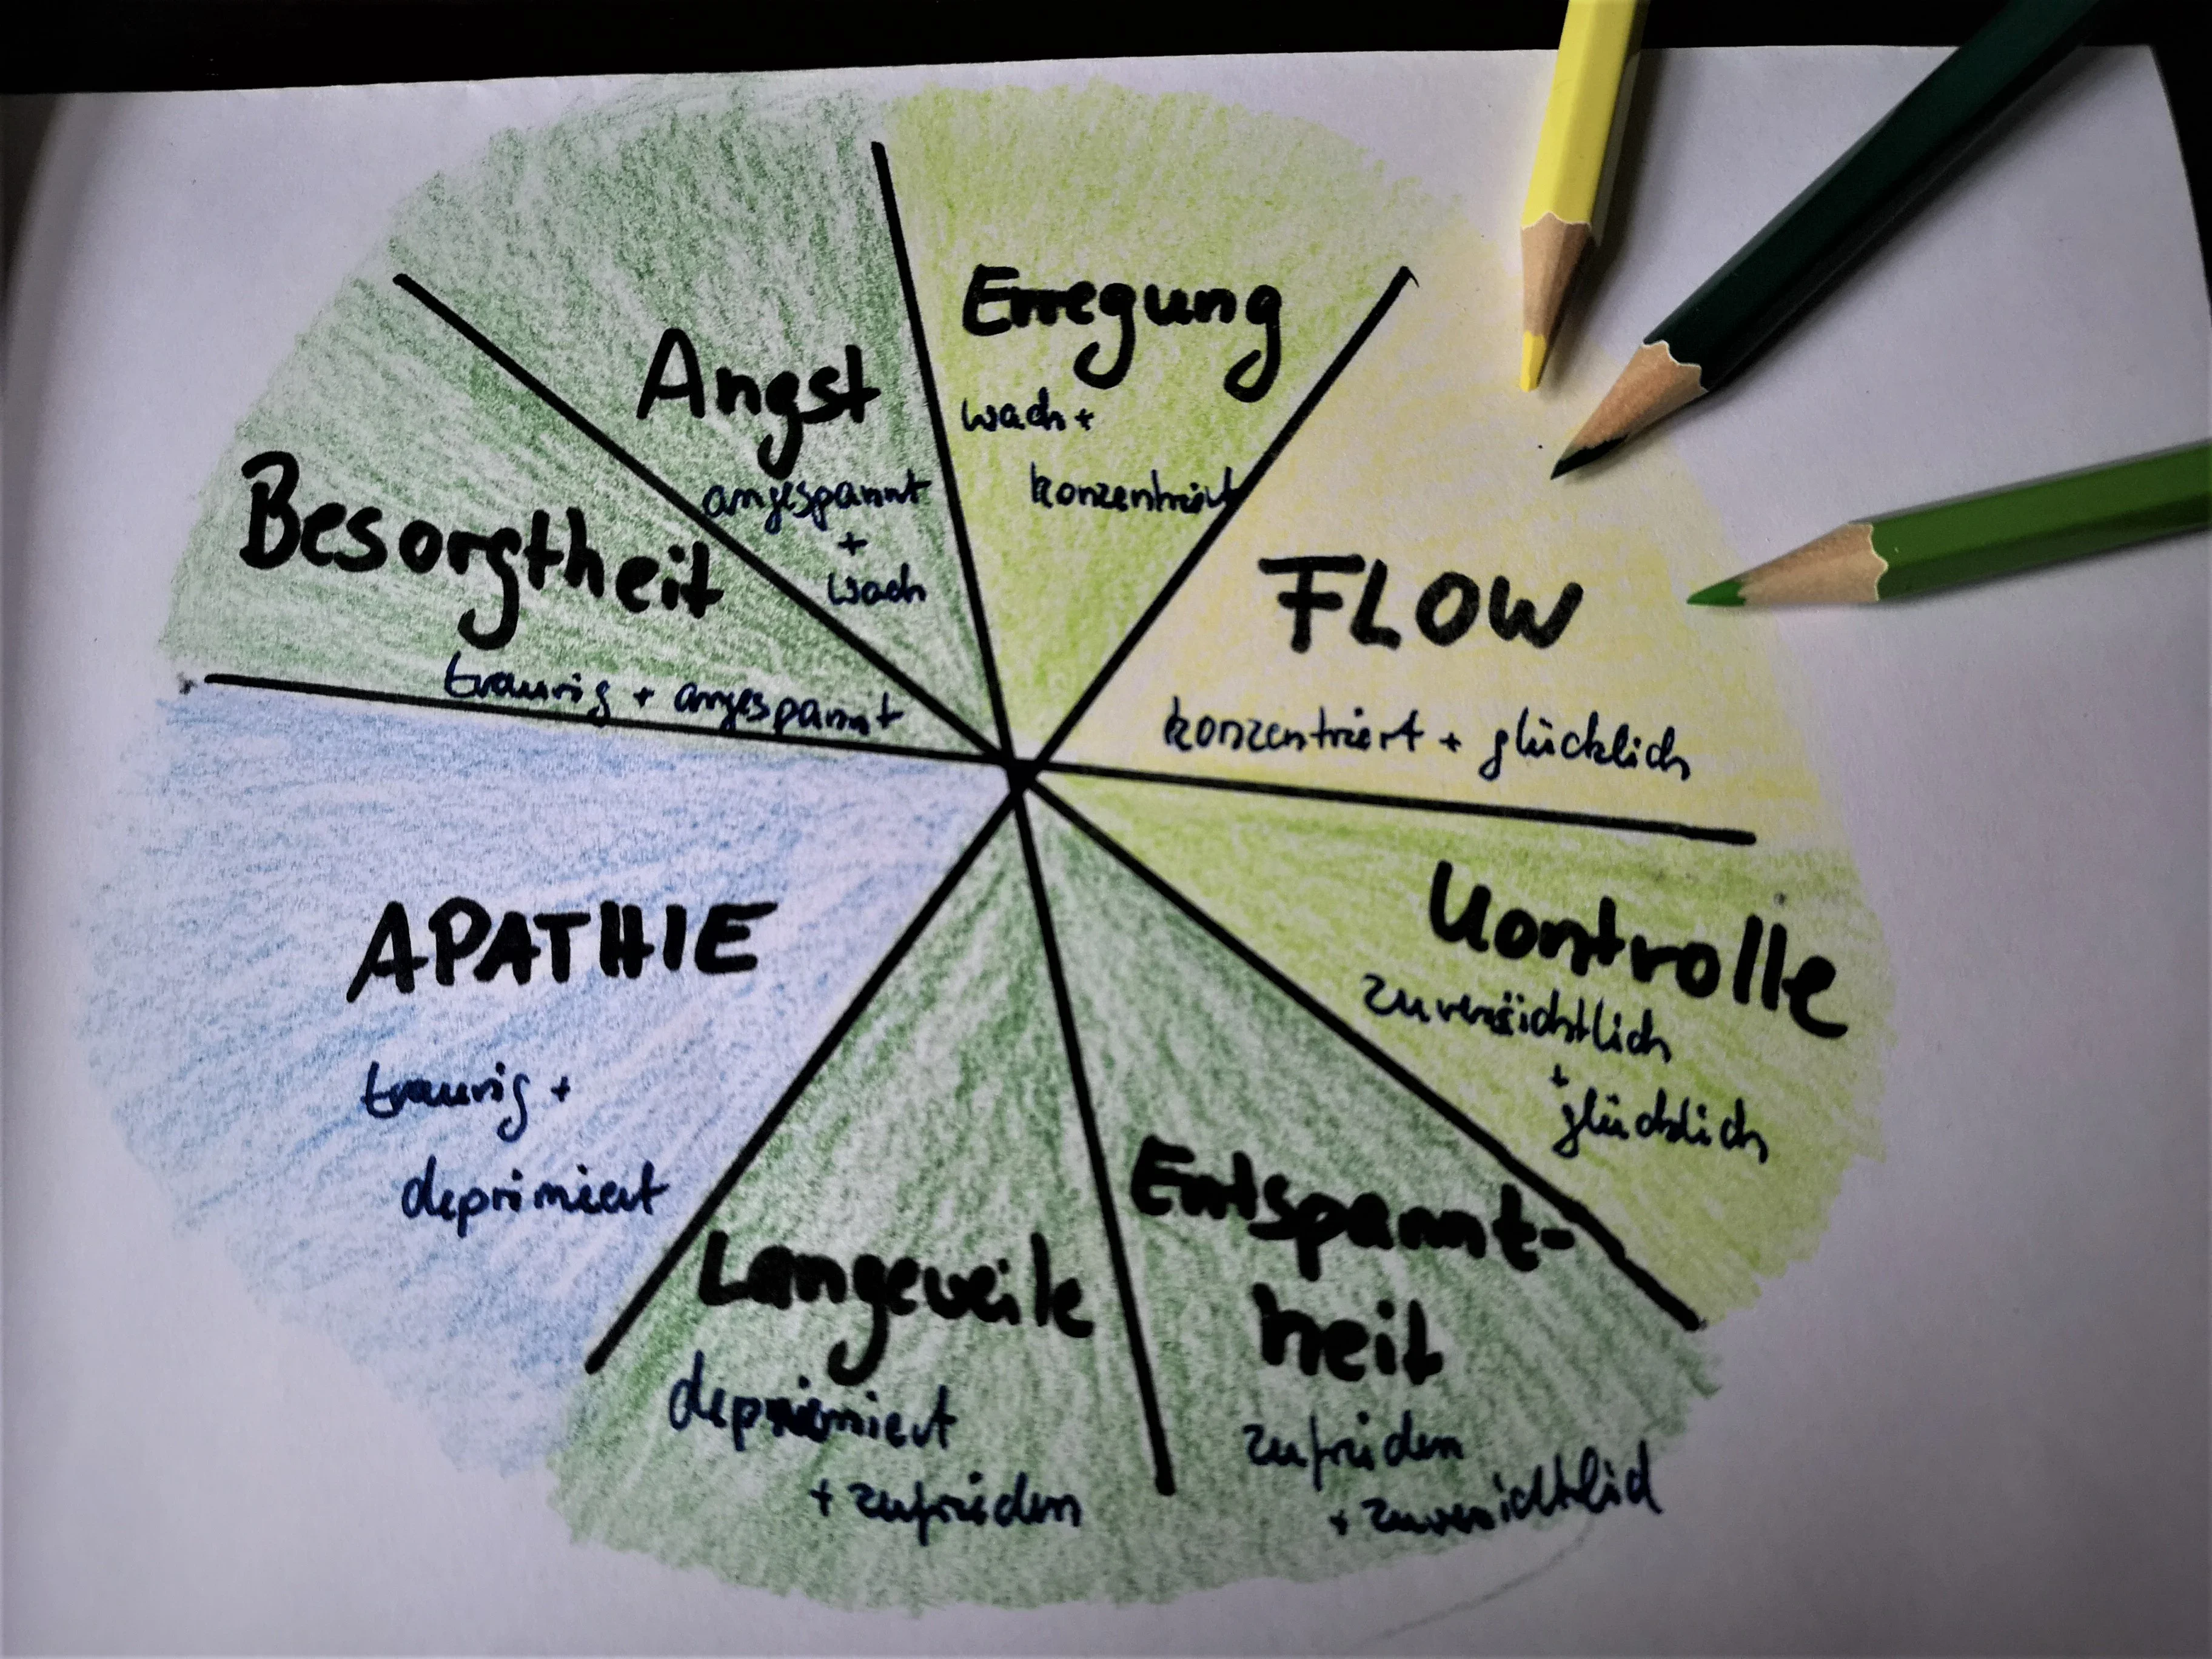 Erregung
wach +
konzentriert
Angst
angespannt
+
wach
Besorgtheit
traurig + angespannt
FLOW
konzentriert + glücklich
Kontrolle
zuversichtlich
+
glücklich
APATHIE
traurig +
deprimiert
Langeweile
deprimiert
+ zufrieden
Entspannt-
heit
zufrieden
+ zuversichtlich